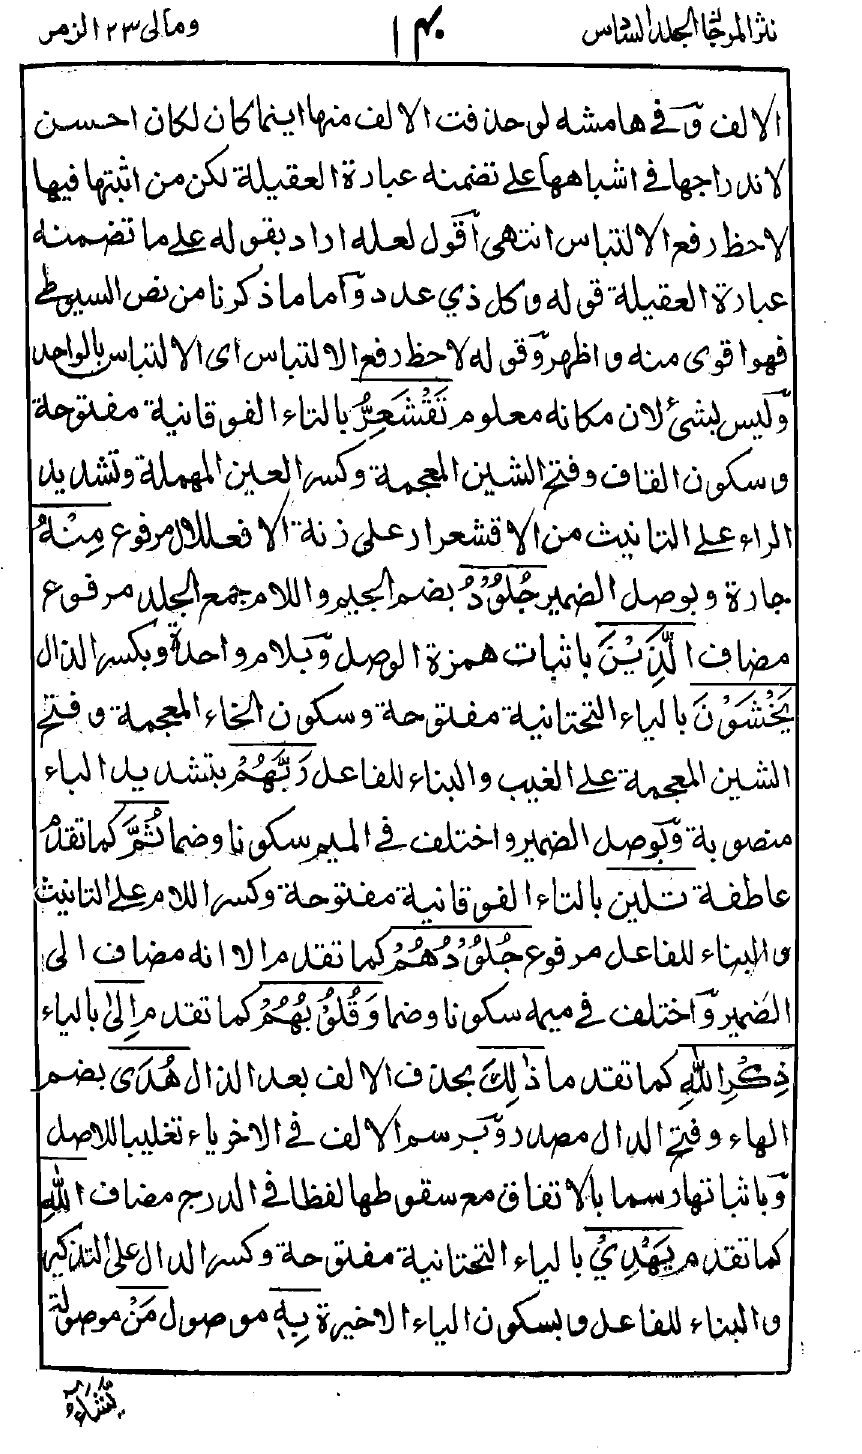 نثر المرجان الجلد السادس ١٤٠ ومالی ٢٣ الزمر
الالف وَفى هامشه لو حذفت الالف منها اينما كان لكان احسن
لاندراجها فى اشباهها على تضمنه عبارة العقيلة لكن من اثبتها فيها
لاحظ رفع الالتباس انتهى اَقول لعله اراد بقوله على ما تضمنه
عبارة العقيلة قوله وكل ذي عدد وَاما ما ذكرنا من نص السيوطى
فهو اقوى منه واظهر وَقوله لاحظ رفع الالتباس اى الالتباس بالواحد
وَليس بشئ لان مكانه معلوم تَقْشَعِرُّ بالتاء الفوقانية مفتوحة
وسكون القاف وفتح الشين المعجمة وكسر العين المهملة وتشديد
الراء على التانيث من الاقشعرار على زنة الافعلال مرفوع مِنْهُ
جارة وبوصل الضمير جُلُوْدُ بضم الجيم واللام جمع الجلد مرفوع
مضاف الَّذِيْنَ باثبات همزة الوصل وَبلام واحدة وبكسر الذال
يَخْشَوْنَ بالياء التحتانية مفتوحة وسكون الخاء المعجمة وفتح
الشين المعجمة على الغيب والبناء للفاعل رَبَّهُمْ بتشديد الباء
منصوبة وَبوصل الضمير واختلف فى الميم سكونا وضما ثُمَّ كما تقدم
عاطفة تلين بالتاء الفوقانية مفتوحة وكسر اللام على التانيث
والبناء للفاعل مرفوع جُلُوْدُهُمْ كما تقدم الا انه مضاف الى
الضمير وَاختلف فى ميمه سكونا وضما وَقُلُوْبُهُمْ كما تقدم اِلىٰ بالياء
ذِكْرِ اللّٰهِ كما تقدما ذٰلِكَ بحذف الالف بعد الذال هُدَى بضم
الهاء وفتح الدال مصدر وَبرسم الالف فى الاخر ياء تغليبا للاصل
وَباثباتها رسما بالاتفاق مع سقوطها لفظا فى الدرج مضاف اللّٰهِ
كما تقدم يَهْدِيْ بالياء التحتانية مفتوحة وكسر الدال على التذكير
والبناء للفاعل وبسكون الياء الاخيرة بِهٖ موصول مَنْ موصولة
يَّشَاءُ